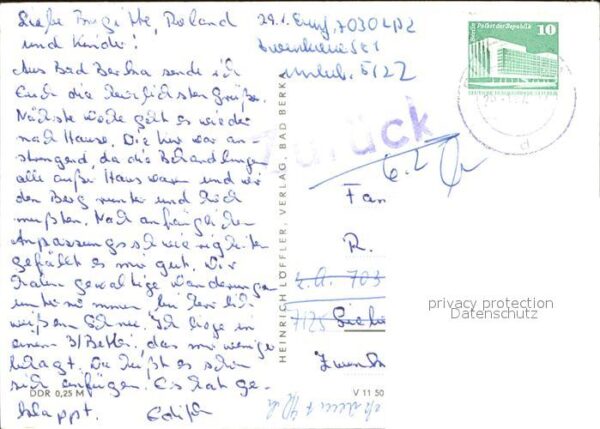 Liebe Brigitte, Roland
und Kinder!
Aus Bad Berka sende ich
Euch die herzlichsten Grüße.
Nächste Woche geht es wieder
nach Hause. Die Kur war an-
strengend, da die Behandlungen
alle außer Haus waren und wir
den Berg runter und hoch
mußten. Nach anfänglichen
Anpassungsschwierigkeiten
gefällt es mir gut. Wir
haben gewaltige Wanderungen
unternommen bei herrlich
weißem Schnee. Ich liege in
einem 3/Bettzi. das mir weniger
behagt. Da heißt es schon
sich anfügen. Es hat ge-
klappt. Edith
DDR 0,25 M
V 11 50
HEINRICH LÖFFLER, VERLAG, BAD BERK
29.1. 7030 LPZ
Zurück
6.2
Berlin Palast der Republik
10
Fam
R.
703
7125
privacy protection
Datenschutz